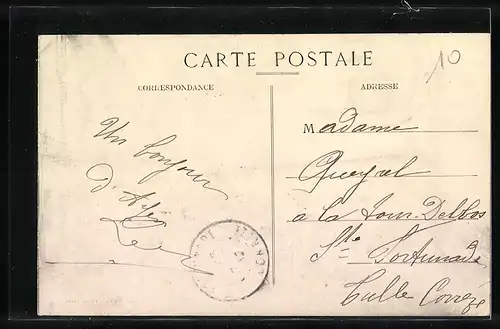 CARTE POSTALE
10
CORRESPONDANCE
ADRESSE
Un bonjour
d'
Madame
Queyrel
à la tour Delbos
Ste Fortunade
Tulle Corrèze